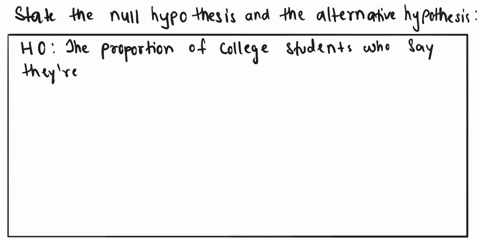 State the null hypothesis and the alternative hypothesis:
H0: The proportion of college students who say
they're